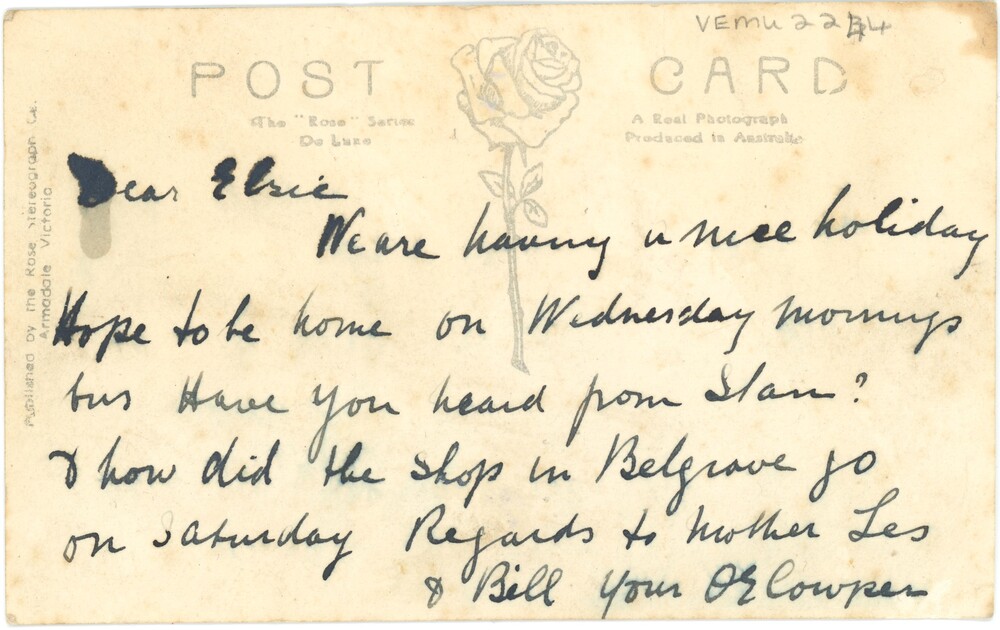 VEMU 2244
POST CARD
The "Rose" Series
De Luxe
A Real Photograph
Produced in Australia
Published by the Rose Stereograph Co.
Armadale Victoria
Dear Elsie
We are having a nice holiday
Hope to be home on Wednesday mornings
bus Have you heard from Stan?
& how did the shop in Belgrave go
on Saturday Regards to Mother Les
& Bill Your Cowper